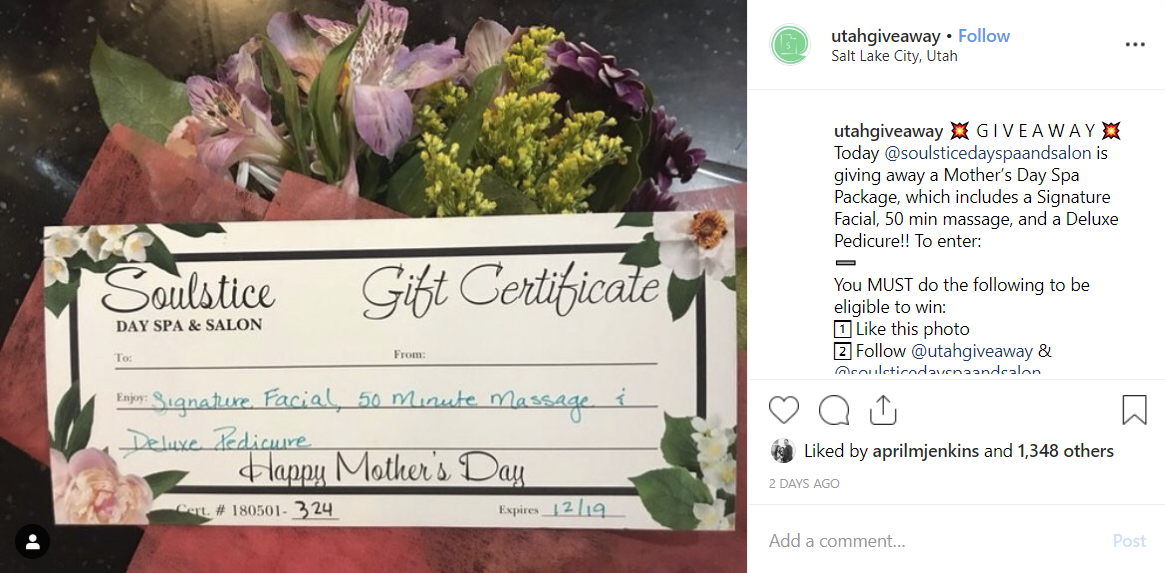 Soulstice
DAY SPA & SALON
Gift Certificate
To:
From:
Enjoy: Signature Facial, 50 Minute Massage &
Deluxe Pedicure
Happy Mother's Day
Cert. # 180501- 324
Expires 12/19
utahgiveaway • Follow
Salt Lake City, Utah
utahgiveaway 💥 G I V E A W A Y 💥
Today @soulsticedayspaandsalon is
giving away a Mother’s Day Spa
Package, which includes a Signature
Facial, 50 min massage, and a Deluxe
Pedicure!! To enter:
➖
You MUST do the following to be
eligible to win:
1️⃣ Like this photo
2️⃣ Follow @utahgiveaway &
@soulsticedayspaandsalon
Liked by aprilmjenkins and 1,348 others
2 DAYS AGO
Add a comment...
Post